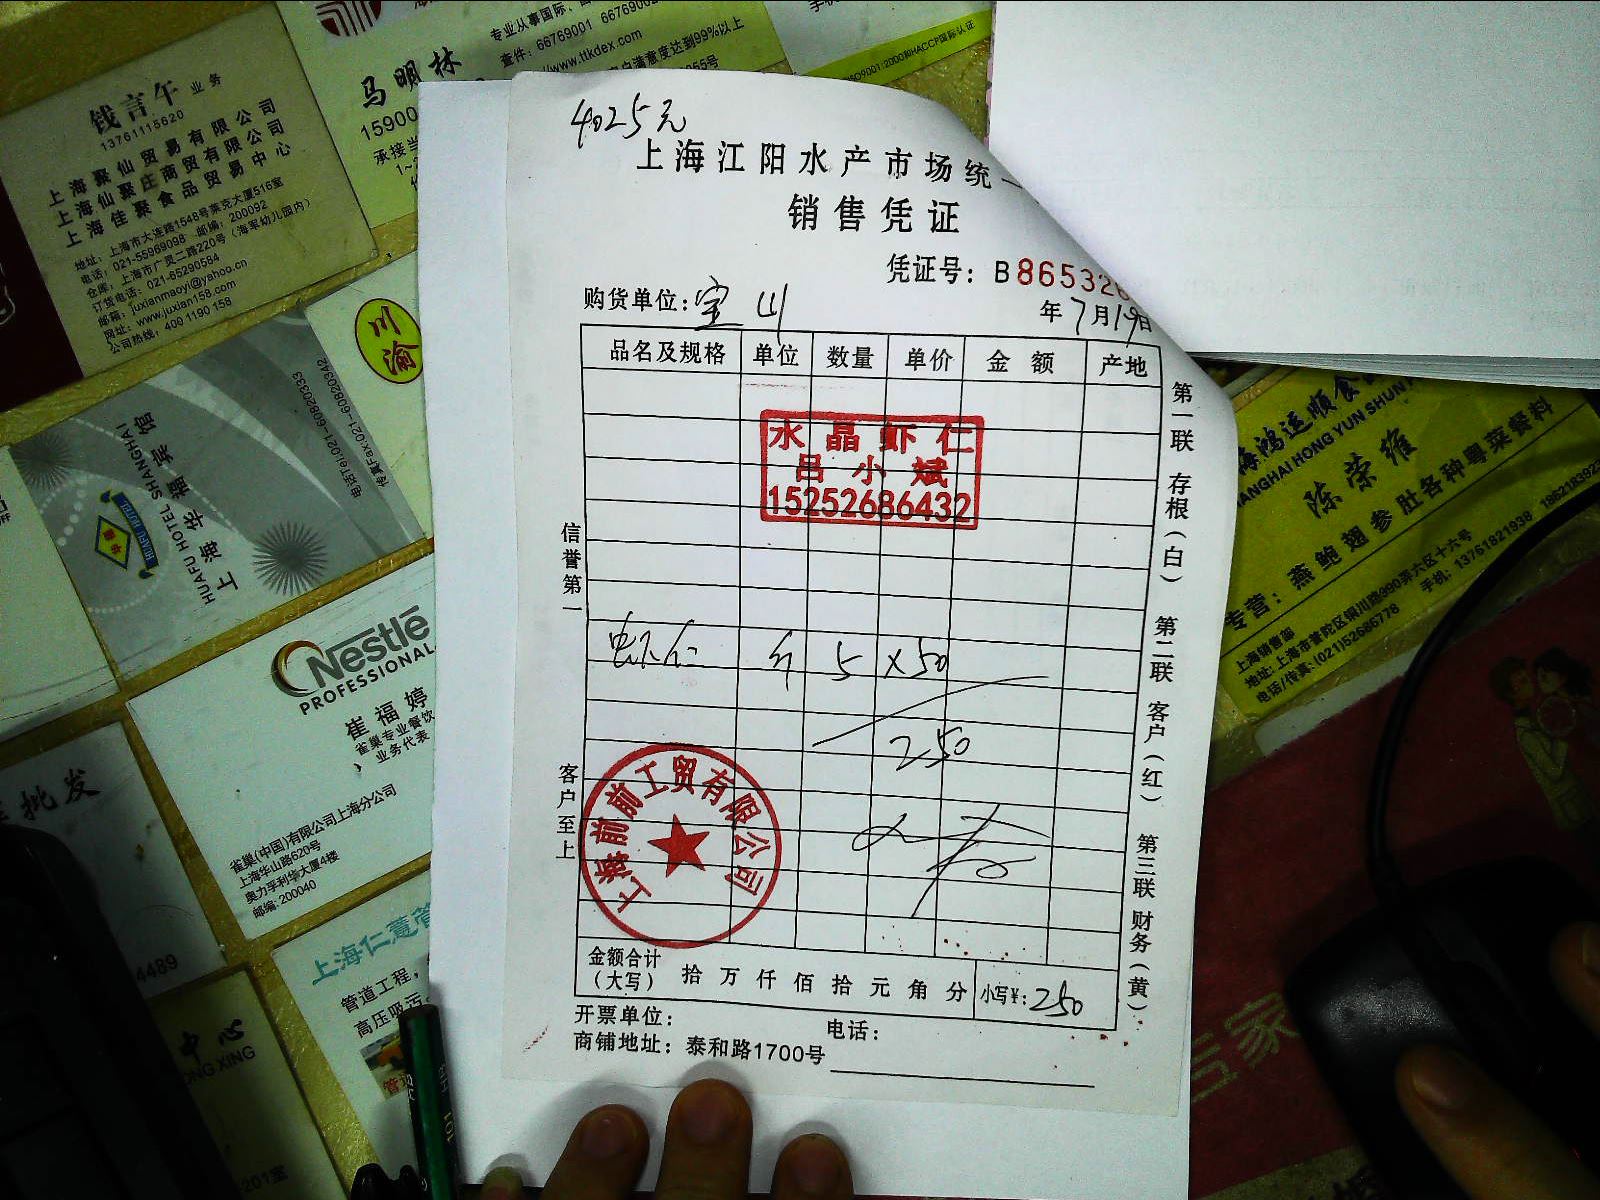 钱言午 业务
13761115620
上海聚仙贸易有限公司
上海仙聚庄商贸有限公司
上海佳聚食品贸易中心
地址：上海市大连路1548号莱克大厦516室
电话：021-55969098 邮编：200092
仓库：上海市广灵二路220号（海军幼儿园内）
订货电话：021-65290584
邮箱：juxianmaoyi@yahoo.cn
网址：www.juxian158.com
公司热线：400 1190 158
专业从事国际、
查件：66769001
www.ttkdex.com
客户满意度达到99%以上
马明林
15900
承接当
ISO9001:2000和HACCP国际认证
川渝
电话Tel:021-60820333
传真Fax:021-60820342
上海华福宾馆
HUAFU HOTEL SHANGHAI
Nestlé
PROFESSIONAL
崔福婷
雀巢专业餐饮
业务代表
雀巢(中国)有限公司上海分公司
上海华山路620号
奥力孚利华大厦4楼
邮编：200040
批发
4489
上海仁薏管
管道工程，
高压吸污
中心
ONG XING
201室
4025元
上海江阳水产市场统一
销售凭证
凭证号：B86532
购货单位：宝山
年7月19日
品名及规格 单位 数量 单价 金额 产地
水晶虾仁
吕小斌
15252686432
斤 5 ×50
250
上海前前工贸有限公司
金额合计（大写） 拾万仟佰拾元角分 小写¥：250
开票单位： 电话：
商铺地址：泰和路1700号
信誉第一
客户至上
第一联 存根（白）
第二联 客户（红）
第三联 财务（黄）
海鸿运顺食
ANGHAI HONG YUN SHUN
陈荣维
专营：燕鲍翅参肚各种粤菜餐料
上海销售部
地址：上海市普陀区铜川路990弄六区十六号
电话/传真：(021)52686778 手机：13761821938